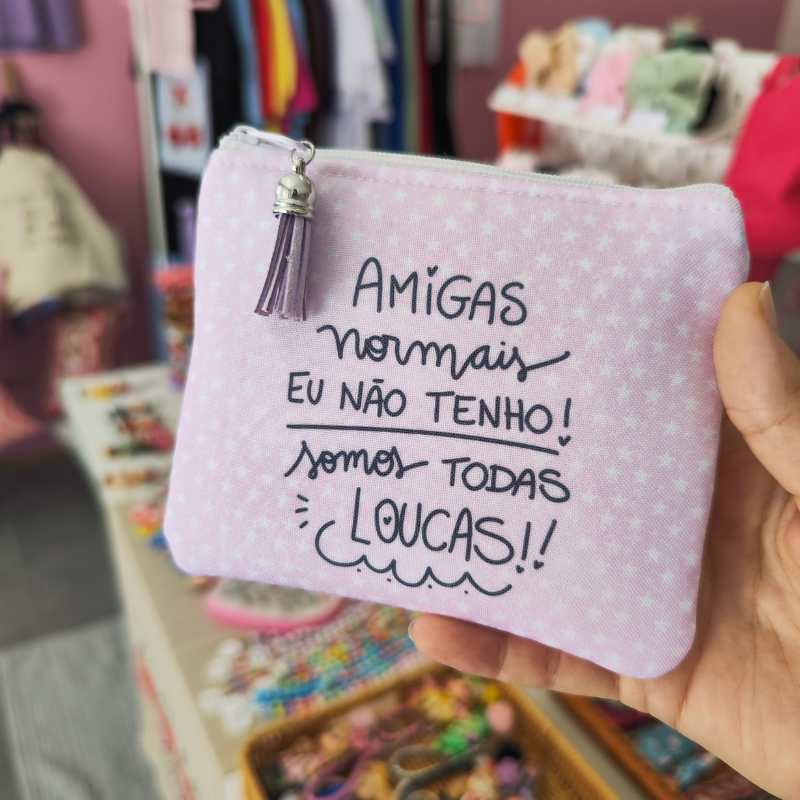 AMiGAS
normais
EU NÃO TENHO!
somos TODAS
LOUCAS!!